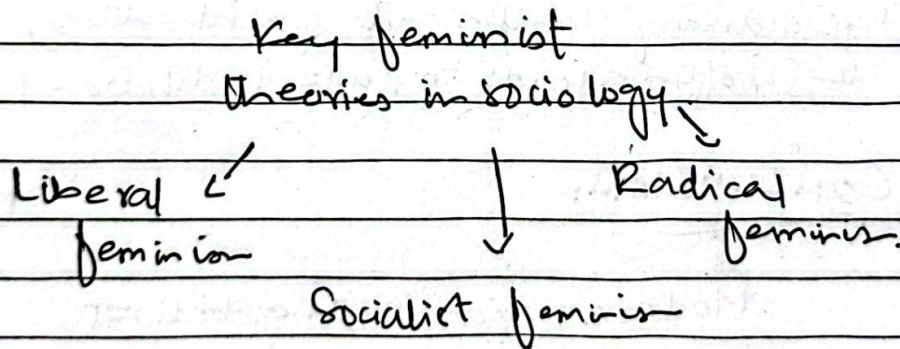 Key feminist
theories in sociology
Liberal
feminism
Radical
feminism
Socialist feminism